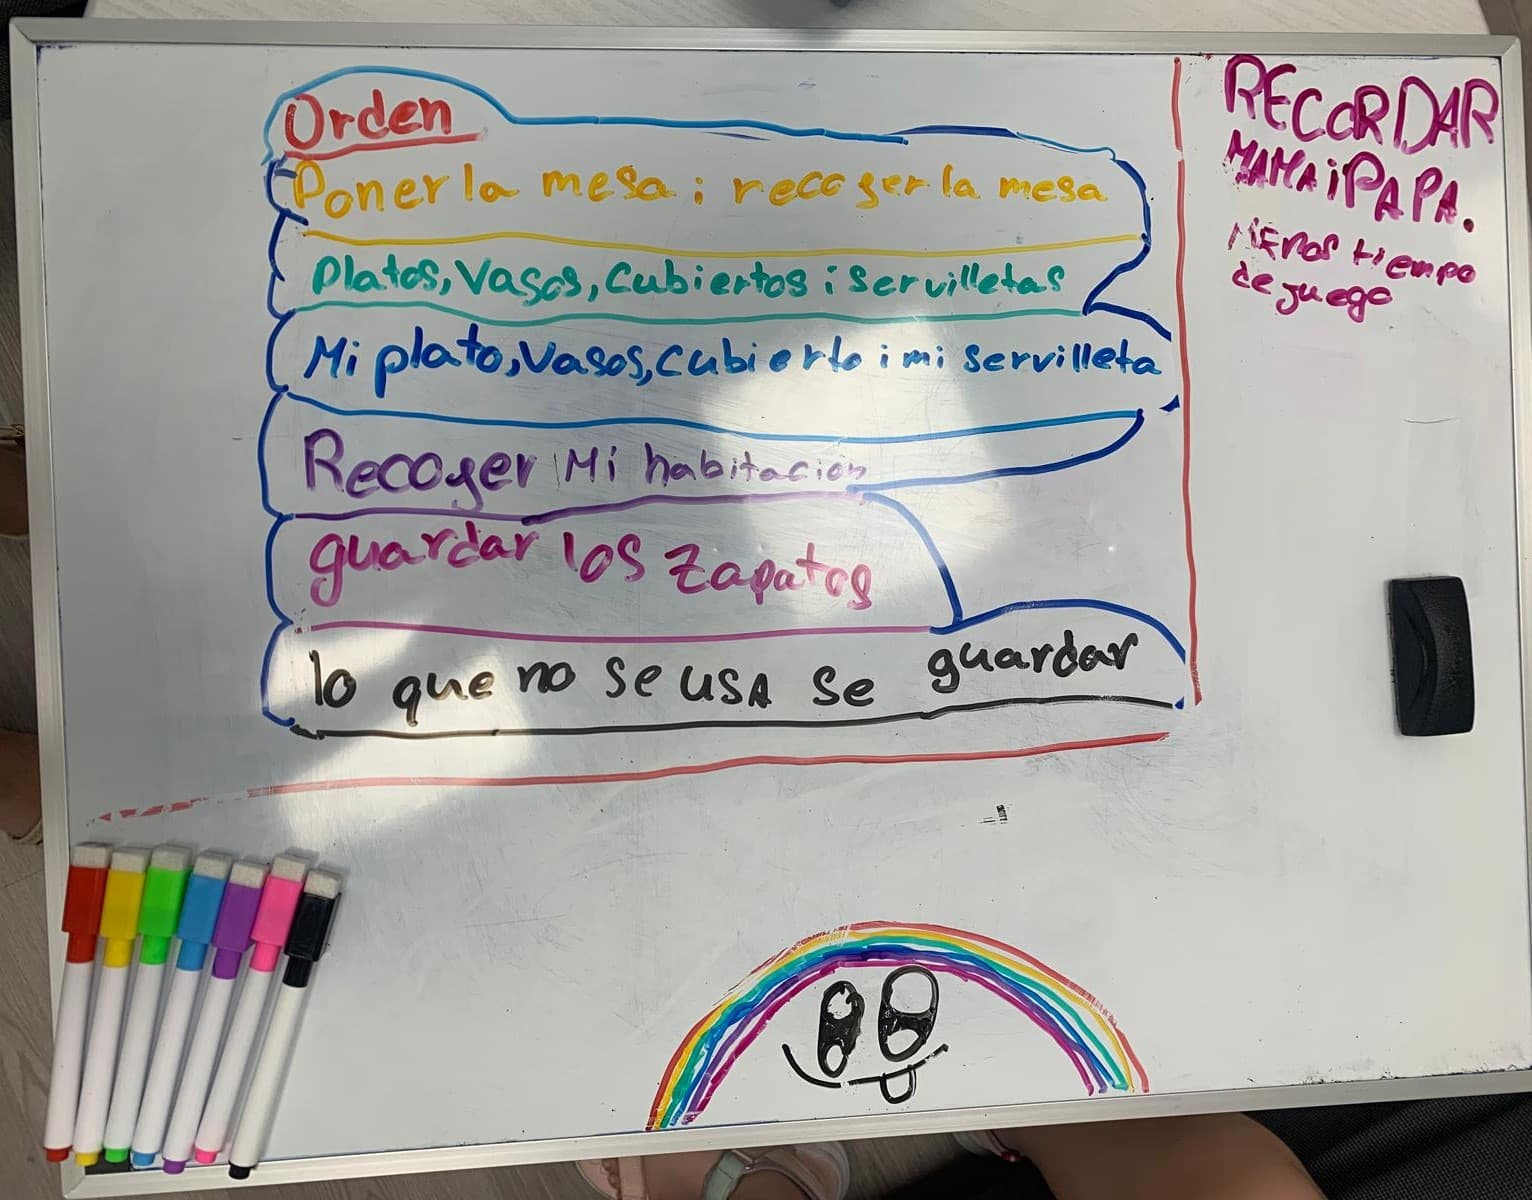 Orden
Poner la mesa i recoger la mesa
Platos, Vasos, Cubiertos i servilletas
Mi plato, Vasos, Cubierto i mi servilleta
Recoger Mi habitacion
guardar los zapatos
lo que no se USA se guardar
RECORDAR
MAMA i PAPA.
MENOS tiempo
de juego